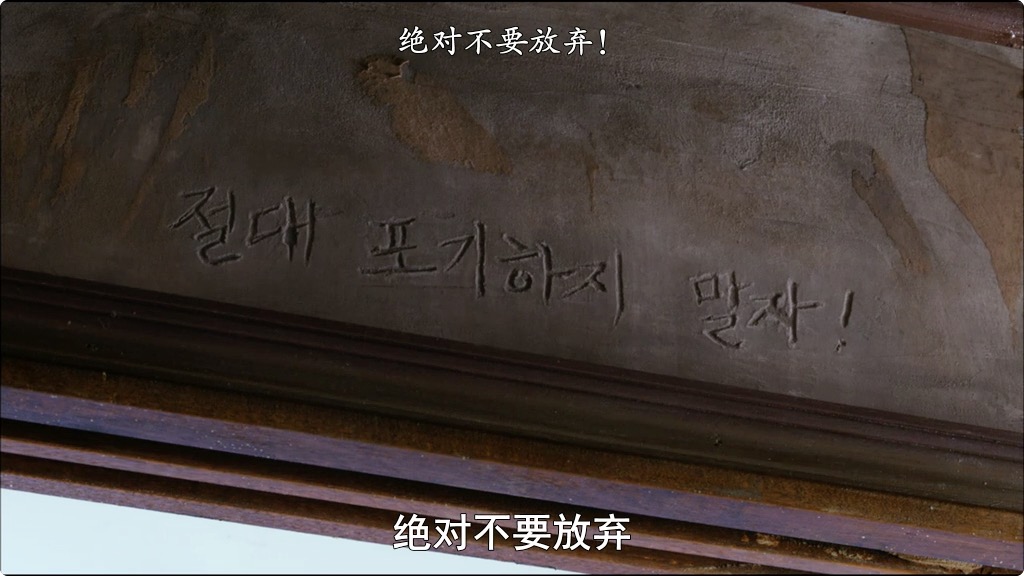 绝对不要放弃！
절대 포기하지 말자!
绝对不要放弃